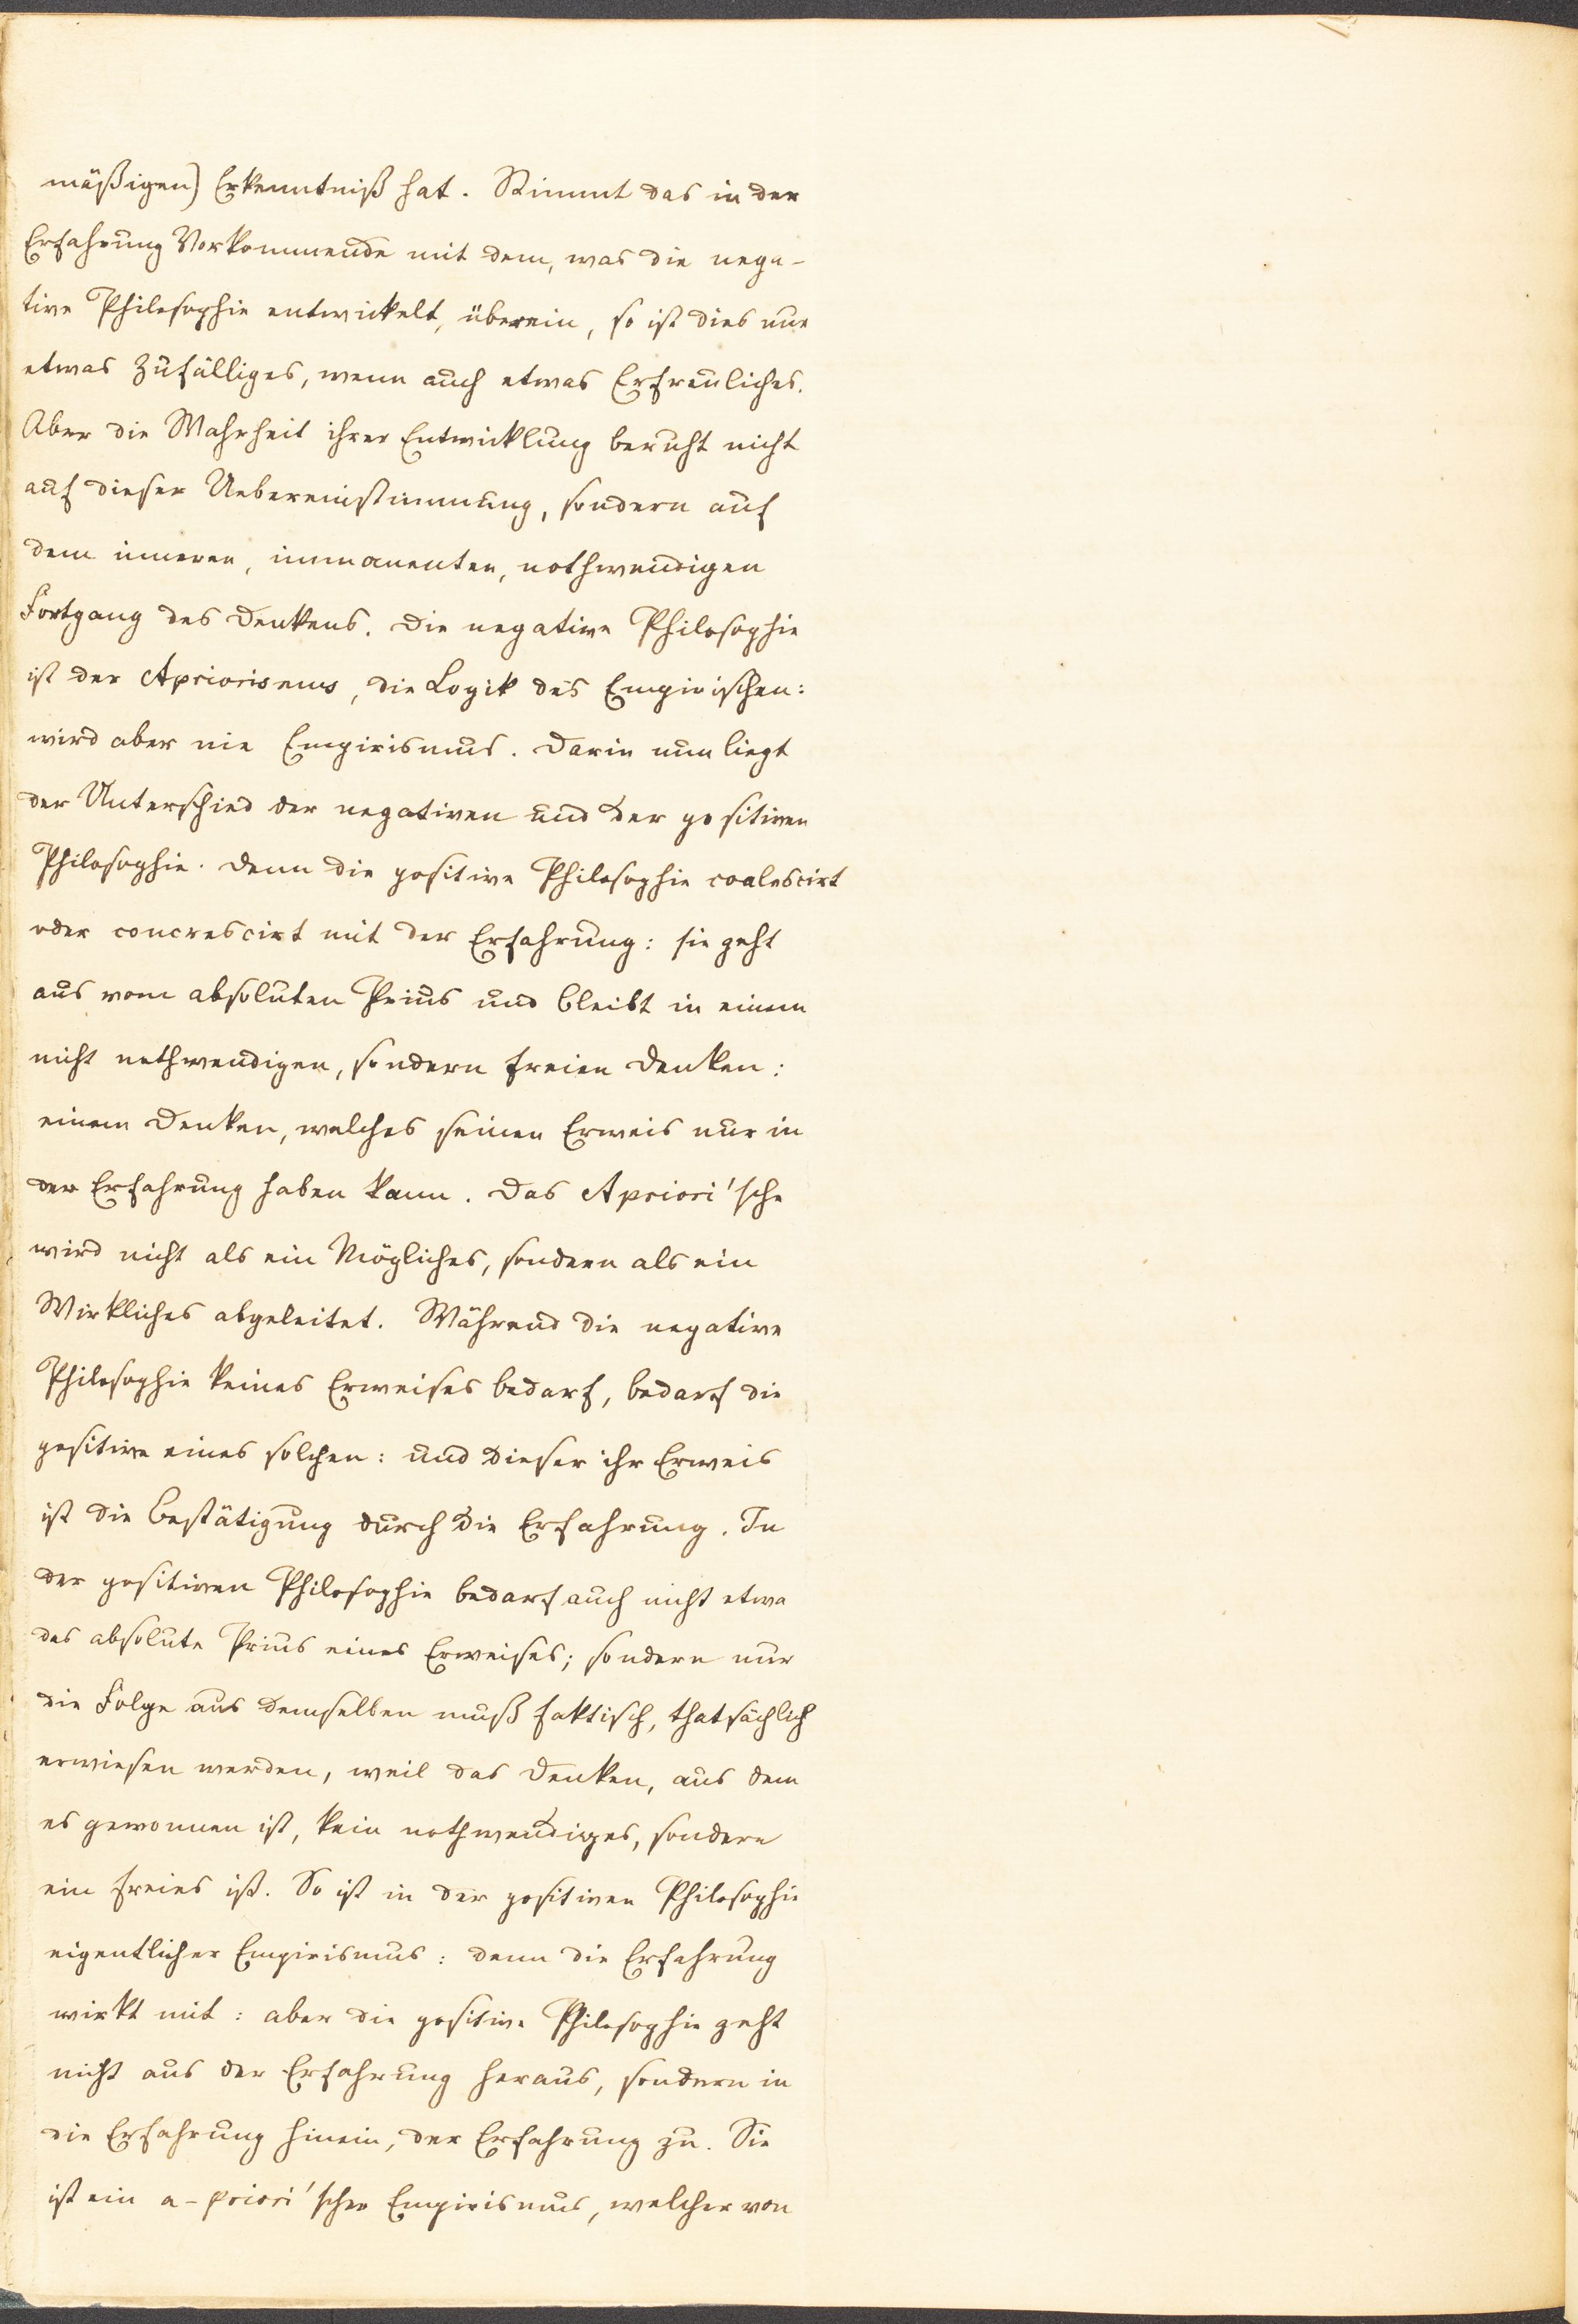 mäßigen) Erkenntniß hat. Stimmt das in der
Erfahrung Vorkommende mit dem, was die nega-
tive Philosophie entwickelt, überein, so ist dies nur
etwas Zufälliges, wenn auch etwas Erfreuliches.
Aber die Wahrheit ihrer Entwicklung beruht nicht
auf dieser Uebereinstimmung, sondern auf
dem inneren, immanenten, nothwendigen
Fortgang des Denkens. Die negative Philosophie
ist der Apriorismus, die Logik des Empirischen:
wird aber nie Empirismus. Darin nun liegt
der Unterschied der negativen und der positiven
Philosophie. Denn die positive Philosophie coalescirt
oder concrescirt mit der Erfahrung: sie geht
aus vom absoluten Prius und bleibt in einem
nicht nothwendigen, sondern freien Denken:
einem Denken, welches seinen Erweis nur in
der Erfahrung haben kann. Das Apriori'sche
wird nicht als ein Mögliches, sondern als ein
Wirkliches abgeleitet. Während die negative
Philosophie keines Erweises bedarf, bedarf die
positive eines solchen: und dieser ihr Erweis
ist die Bestätigung durch die Erfahrung. In
der positiven Philosophie bedarf auch nicht etwa
das absolute Prius eines Erweises; sondern nur
die Folge aus demselben muß faktisch, thatsächlich
erwiesen werden, weil das Denken, aus dem
es gewonnen ist, kein nothwendiges, sondern
ein freies ist. So ist in der positiven Philosophie
eigentlicher Empirismus: denn die Erfahrung
wirkt mit: aber die positive Philosophie geht
nicht aus der Erfahrung heraus, sondern in
die Erfahrung hinein, der Erfahrung zu. Sie
ist ein a-priori'scher Empirismus, welcher von